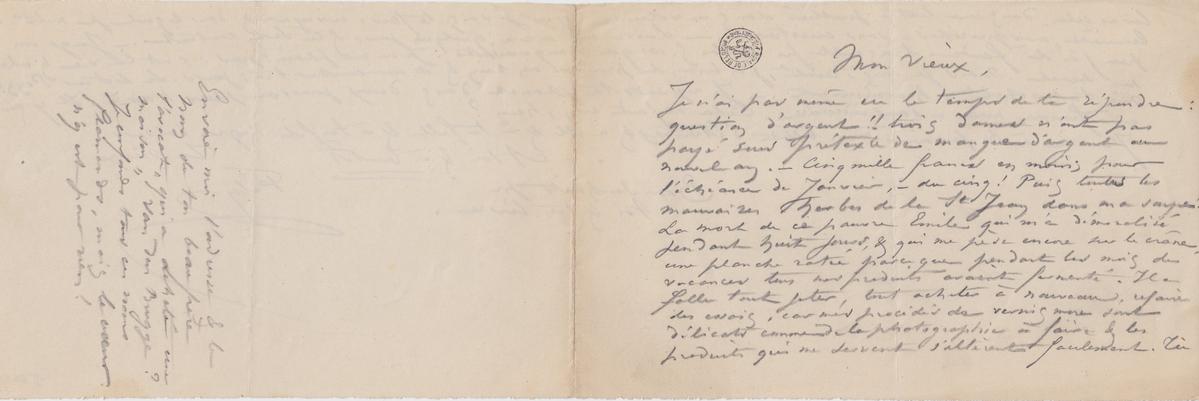 Mon vieux,
Je n'ai pas même eu le temps de te répondre :
question d'argent !! trois dames n'ont pas
payé sous prétexte de manque d'argent au
nouvel an. – Cinq mille francs en moins pour
l'échéance de Janvier, – du cinq ! Puis toutes les
mauvaises herbes de la St Jean dans ma soupe !
La mort de ce pauvre Emile qui m'a démoralisé
pendant huit jours, & qui me pèse encore sur le crâne,
une planche ratée parceque pendant les mois des
vacances tous nos produits avaient fermenté. Il a
fallu tout jeter, tout acheter à nouveau, refaire
des essais, car mes procédés de vernis mous sont
délicats comme de la photographie à faire & les
produits qui me servent s'altèrent facilement. Tu
Envoie-moi l'adresse & le
nom de ton beau-père
l'avocat, qui a acheté une
maison, van der Brugge ?
Je confonds tous ces noms
flamands, mais le cœur
n'y est pour rien !